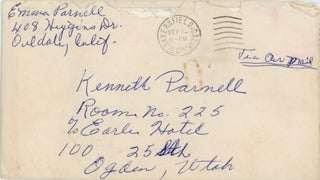 Emma Parnell
408 Higgins Dr.
Oildale, Calif.
BAKERSFIELD, CA
SEP
Via Air Mail
Kenneth Parnell
Room No. 225
℅ Earles Hotel
100 25th
Ogden, Utah